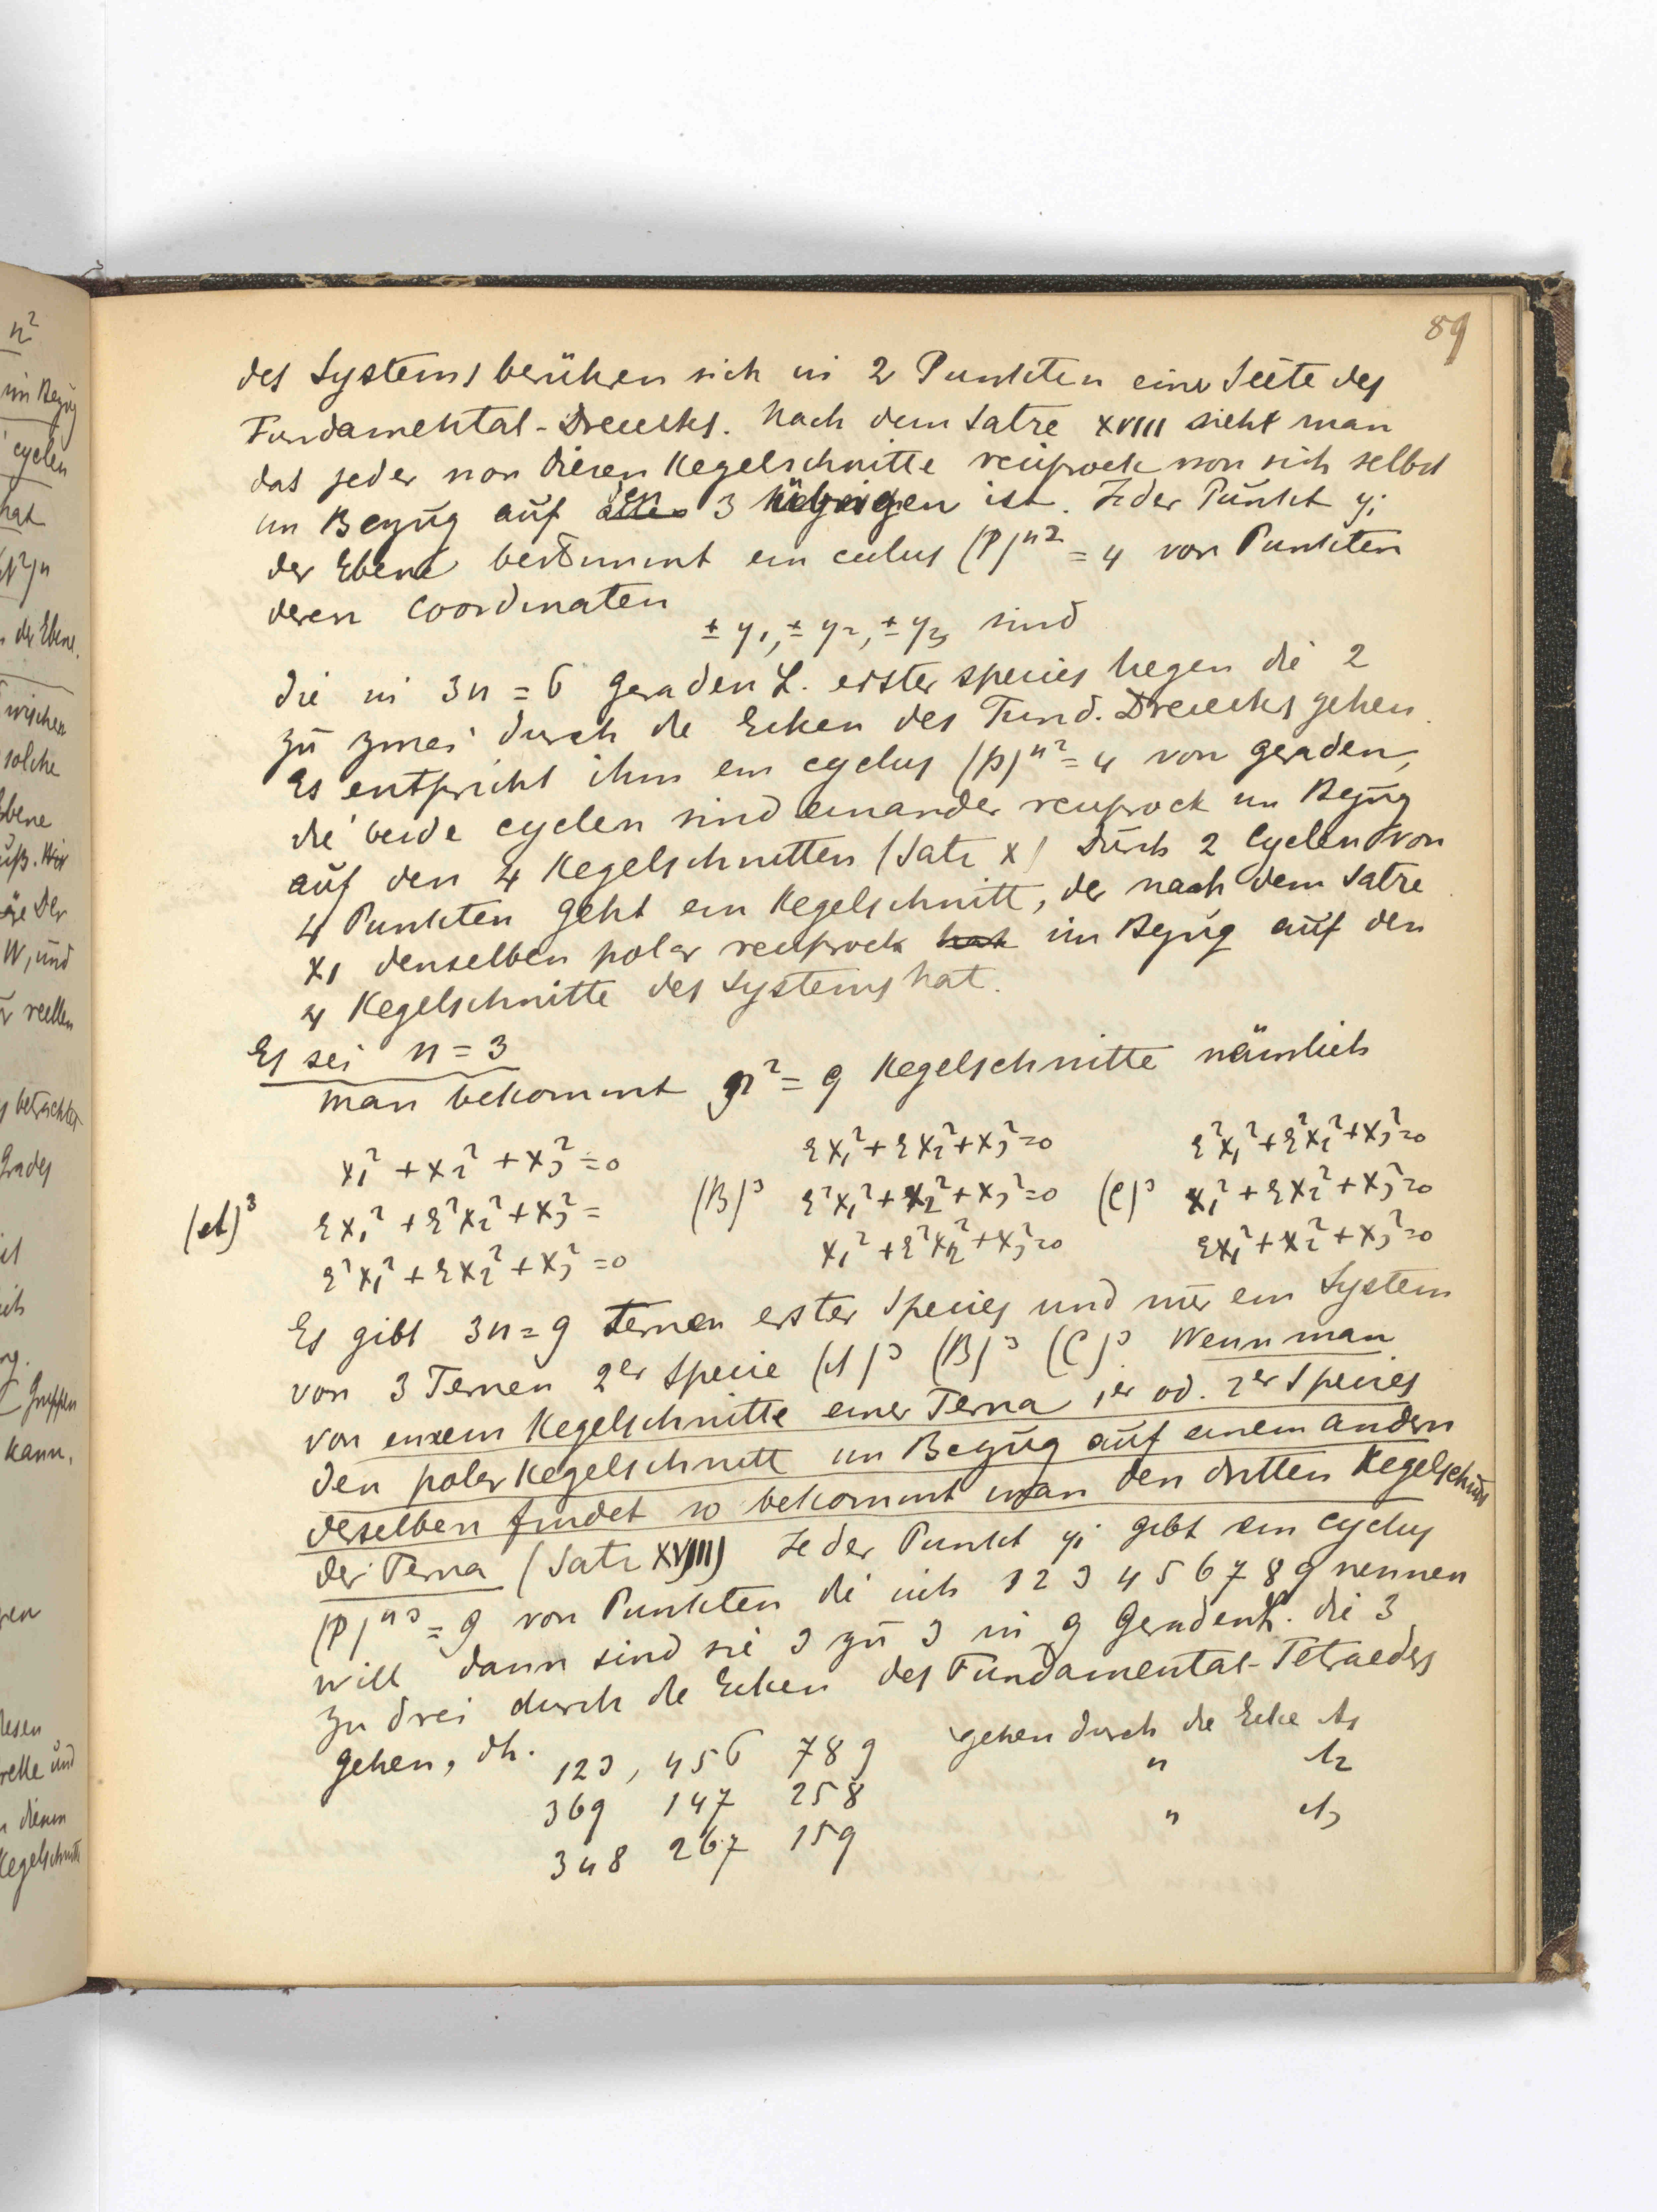 89
des Systems berühren sich in 2 Punkten einer Seite des
Fundamental-Dreiecks. Nach dem Satze XVIII sieht man
das jeder von diesen Kegelschnitte reciprock von sich selbst
im Bezug auf den 3 übrigen ist. Jeder Punkt yi
der Ebene bestimmt ein ciclus (P)^n2 = 4 von Punkten
deren Coordinaten
± y1, ± y2, ± y3 sind
die in 3n = 6 geraden L. erster species liegen die 2
zu zwei durch die Ecken des Fund. Dreiecks gehen.
Es entspricht ihm ein cyclus (p)^n² = 4 von geraden,
die beide cyclen sind einander reciprock im Bezug
auf den 4 Kegelschnitten (Satz X) Durch 2 Cyclen von
4 Punkten geht ein Kegelschnitt, der nach dem Satze
XI denselben polar reciprock hat im Bezug auf den
4 Kegelschnitte des Systems hat.
Es sei n = 3
man bekommt n² = 9 Kegelschnitte nämlich
x₁² + x₂² + x₃² = 0 εx₁² + εx₂² + x₃² = 0 ε²x₁² + ε²x₂² + x₃² = 0
(A)³ εx₁² + ε²x₂² + x₃² = (B)³ ε²x₁² + x₂² + x₃² = 0 (C)³ x₁² + εx₂² + x₃² = 0
ε²x₁² + εx₂² + x₃² = 0 x₁² + ε²x₂² + x₃² = 0 εx₁² + x₂² + x₃² = 0
Es gibt 3n = 9 Ternen erster Species und nur ein System
von 3 Ternen 2er Specie (A)³ (B)³ (C)³. Wenn man
von einem Kegelschnitte einer Terna 1er od. 2er Species
den polar Kegelschnitt im Bezug auf einem andern
derselben findet so bekommt man den dritten Kegelschnitt
der Terna (Satz XVIII) Jeder Punkt yi gibt ein cyclus
(P)^n3 = 9 von Punkten die ich 1 2 3 4 5 6 7 8 9 nennen
will dann sind sie 3 zu 3 in 9 Geraden L. die 3
zu drei durch die Ecken des Fundamental-Tetraeders
gehen, dh. 123, 456 789 gehen durch die Ecke A1
369 147 258 " A2
348 267 159 " A3